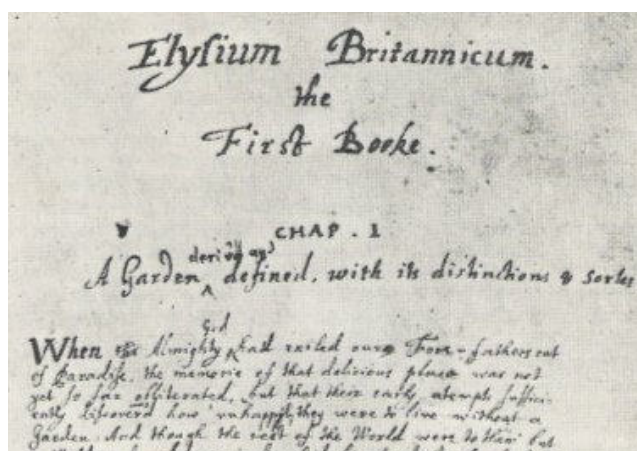 Elysium Britannicum.
the
First Booke.
CHAP. 1
A Garden deriv'd and defined, with its distinctions & sortes
When the Almighty God had exiled our Fore-fathers out
of Paradise, the memorie of that delicious place was not
yet so far obliterated, but that their early attempts suffici-
ently discover'd how unhappily they were to live without a
Garden. And though the rest of the World were to them but